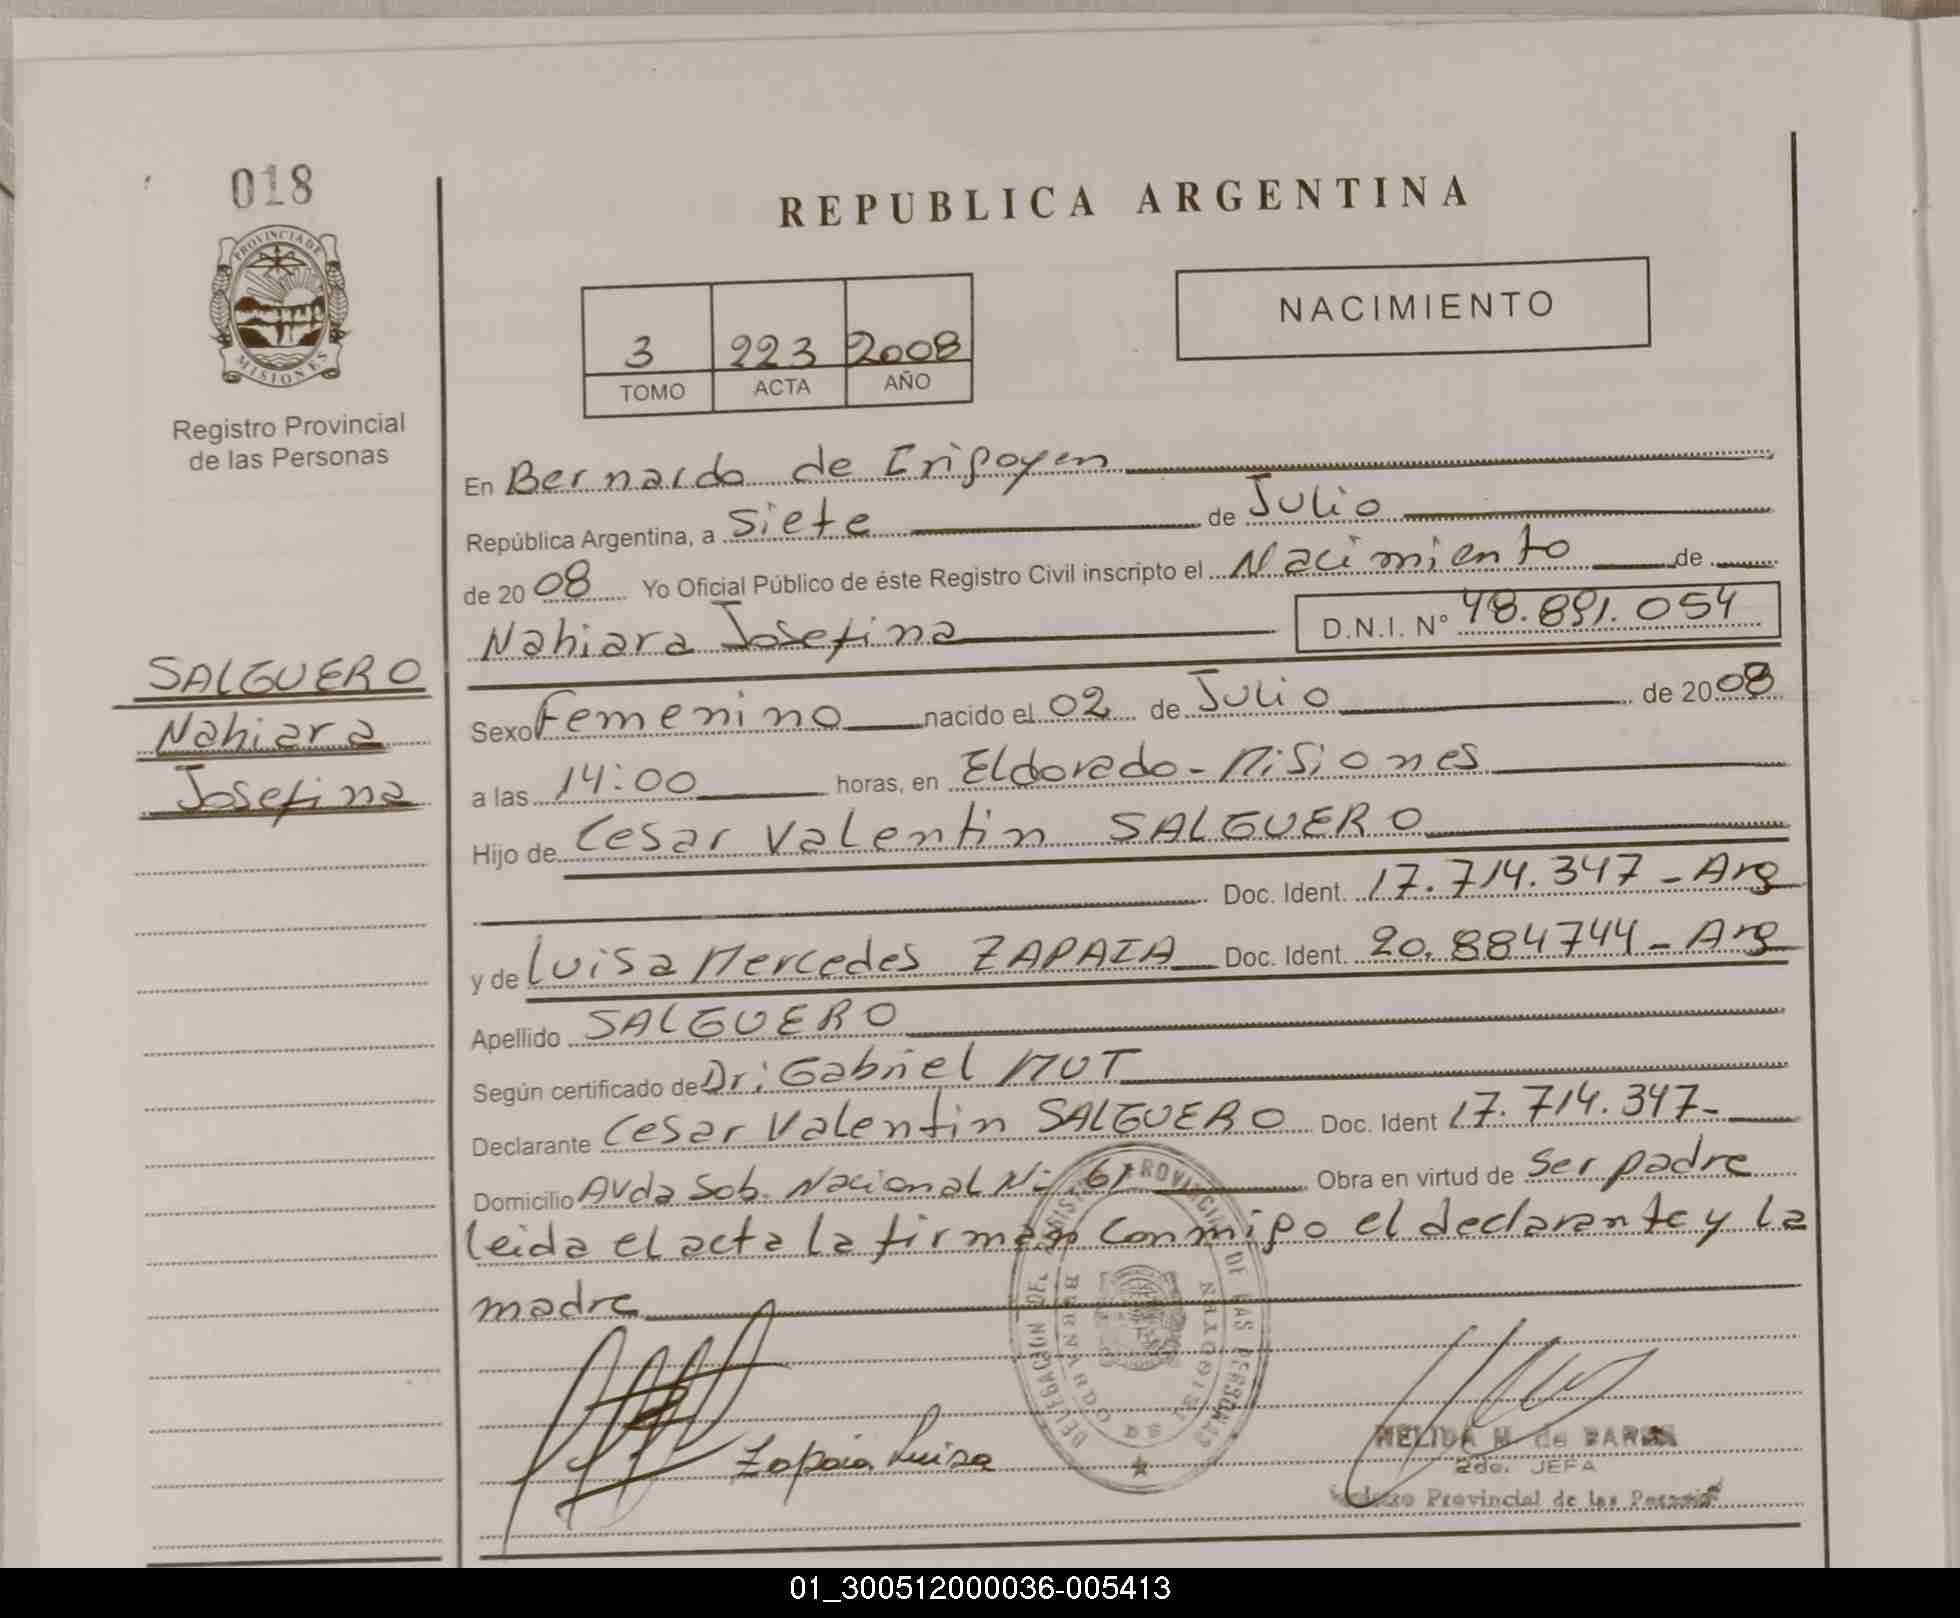 018
REPUBLICA ARGENTINA
PROVINCIA DE
MISIONES
3 223 2008
TOMO ACTA AÑO
NACIMIENTO
Registro Provincial
de las Personas
En Bernardo de Irigoyen
República Argentina, a siete de Julio
de 2008 Yo Oficial Público de éste Registro Civil inscripto el Nacimiento de
Nahiara Josefina D.N.I. N° 48.891.054
SALGUERO
Nahiara
Josefina
Sexo Femenino nacido el 02 de Julio de 2008
a las 14:00 horas, en Eldorado - Misiones
Hijo de Cesar Valentin SALGUERO
Doc. Ident. 17.714.347 - Arg
y de Luisa Mercedes ZAPAIA Doc. Ident. 20.884744 - Arg
Apellido SALGUERO
Según certificado de Dr: Gabriel MUT
Declarante Cesar Valentin SALGUERO Doc. Ident 17.714.347-
Domicilio Avda Sob. Nacional N: 61 Obra en virtud de Ser padre
leida el acta la firman conmigo el declarante y la
madre
DELEGACION DEL REGISTRO PROVINCIAL DE LAS PERSONAS
BERNARDO DE IRIGOYEN
Zapaia Luisa
NELIDA M. de
2do. JEFA
Registro Provincial de las Personas
01_300512000036-005413